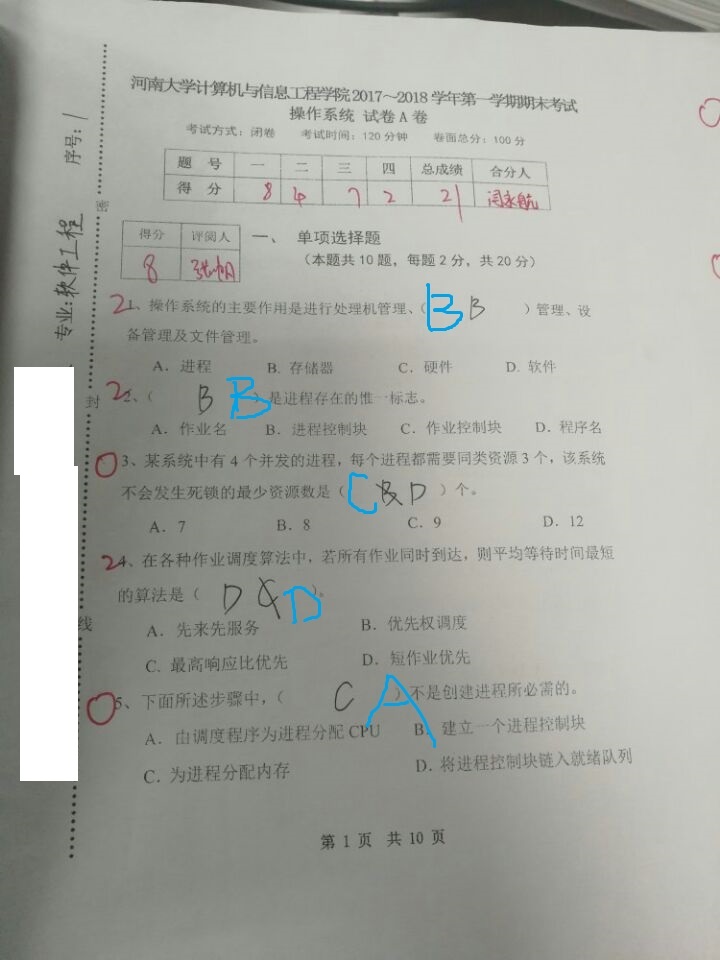 河南大学计算机与信息工程学院2017～2018学年第一学期期末考试
操作系统 试卷A卷
考试方式：闭卷 考试时间：120分钟 卷面总分：100分
题 号 一 二 三 四 总成绩 合分人
得 分 8 4 7 2 21
得分 评阅人
8
一、 单项选择题
（本题共10题，每题2分，共20分）
2 1、操作系统的主要作用是进行处理机管理、（ B B ）管理、设
备管理及文件管理。
A. 进程 B. 存储器 C. 硬件 D. 软件
2 2、（ B B ）是进程存在的惟一标志。
A. 作业名 B. 进程控制块 C. 作业控制块 D. 程序名
0 3、某系统中有4个并发的进程，每个进程都需要同类资源3个，该系统
不会发生死锁的最少资源数是（ C D ）个。
A. 7 B. 8 C. 9 D. 12
2 4、在各种作业调度算法中，若所有作业同时到达，则平均等待时间最短
的算法是（ D D ）。
A. 先来先服务 B. 优先权调度
C. 最高响应比优先 D. 短作业优先
0 5、下面所述步骤中，（ C A ）不是创建进程所必需的。
A. 由调度程序为进程分配CPU B. 建立一个进程控制块
C. 为进程分配内存 D. 将进程控制块链入就绪队列
第 1 页 共 10 页
专业：软件工程 序号：1
密
封
线